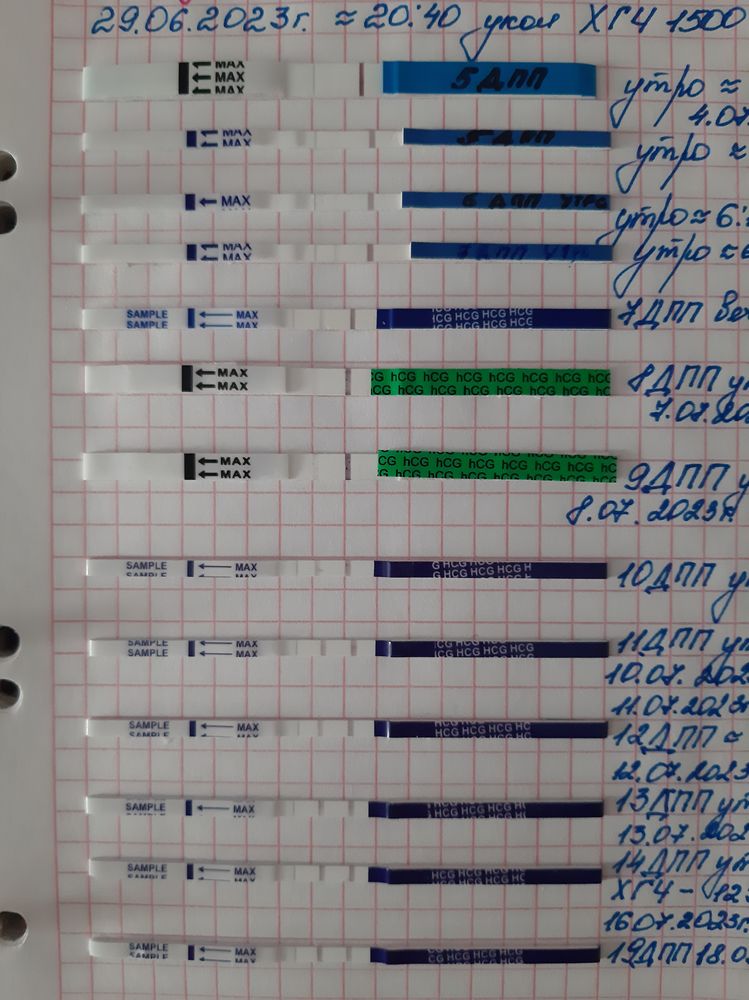 29.06.2023г. ≈ 20:40 укол ХГЧ 1500
MAX
MAX
MAX
5 ДПП
утро ≈
4.07.
MAX
MAX
5 ДПП
утро ≈
MAX
6 ДПП утро
утро ≈ 6:
MAX
MAX
7 ДПП
утро ≈
SAMPLE
SAMPLE
MAX
MAX
HCG HCG HCG HCG
HCG HCG HCG HCG
7ДПП веч
MAX
MAX
CG hCG hCG hCG hCG hCG hCG hC
CG hCG hCG hCG hCG hCG hCG hC
8ДПП у
7.07.202
MAX
MAX
CG hCG hCG hCG hCG hCG hCG hC
CG hCG hCG hCG hCG hCG hCG hC
9ДПП у
8.07.2023г.
SAMPLE
SAMPLE
MAX
MAX
G HCG HCG HCG H
G HCG HCG HCG
10ДПП у
SAMPLE
SAMPLE
MAX
MAX
HCG HCG HCG HCG
ICG HCG HCG HCG
11ДПП ут
10.07.202
11.07.2023г
SAMPLE
SAMPLE
MAX
MAX
HCG HCG HCG HC
HCG HCG HCG HC
12ДПП ≈
12.07.2023
SAMPLE
MAX
HCG HCG HCG H
HCG HCG HCG HC
13ДПП ут
13.07.202
SAMPLE
SAMPLE
MAX
MAX
HCG HCG HCG HC
14ДПП ут
ХГЧ - 123
16.07.2023г.
SAMPLE
SAMPLE
MAX
MAX
CG HCG HCG HCG
HCG HCG HCG
19ДПП 18.0